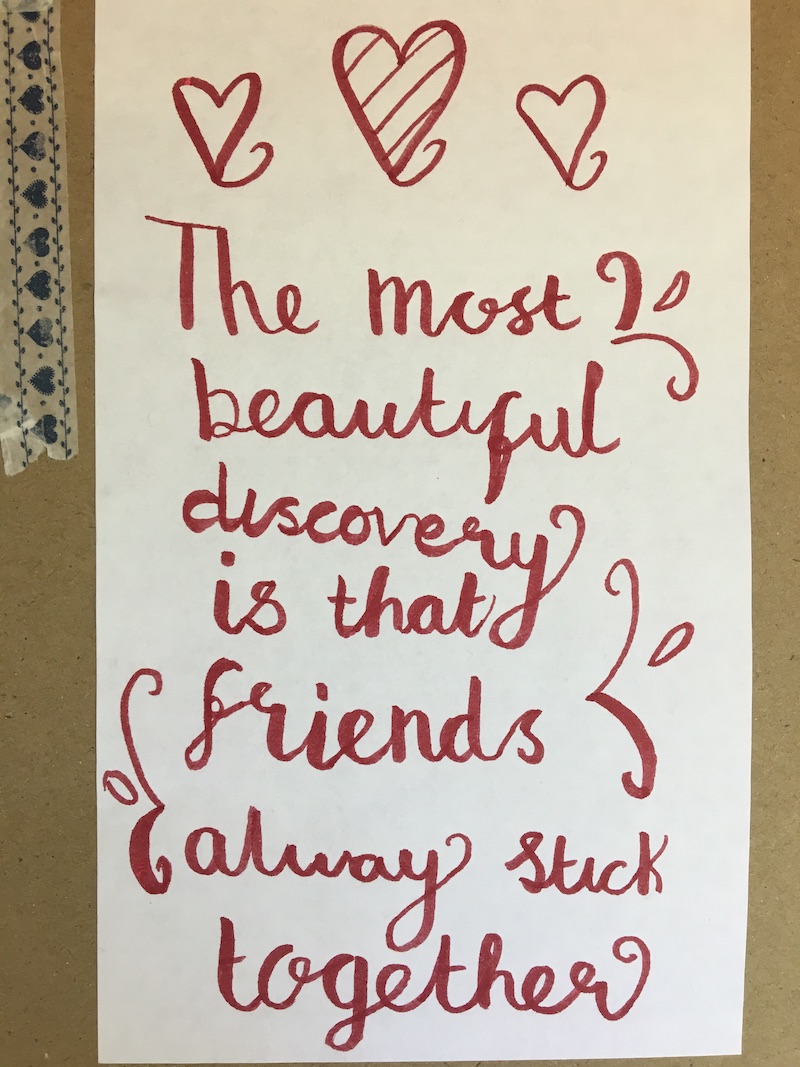 The most
beautiful
discovery
is that
friends
alway stick
together